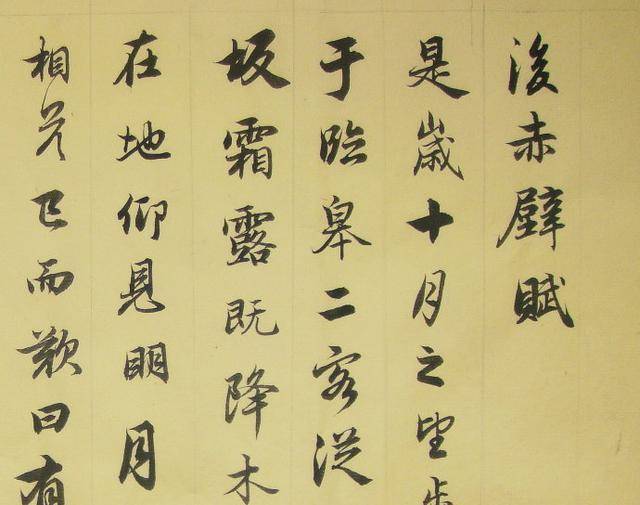 後赤壁賦
是歲十月之望步
于臨皋二客從
坂霜露既降木
在地仰見明月
相答已而歎曰有